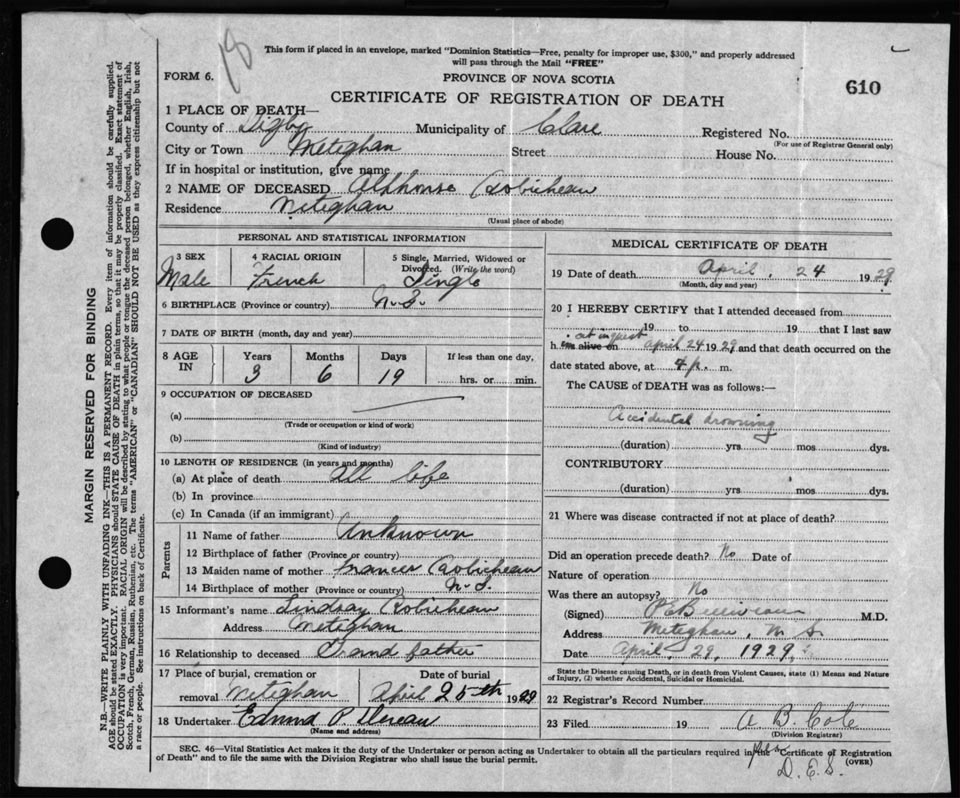 18
This form if placed in an envelope, marked "Dominion Statistics—Free, penalty for improper use, $300," and properly addressed
will pass through the Mail "FREE"
FORM 6.
PROVINCE OF NOVA SCOTIA
610
CERTIFICATE OF REGISTRATION OF DEATH
1 PLACE OF DEATH—
County of Digby Municipality of Clare Registered No.
(For use of Registrar General only)
City or Town Meteghan Street House No.
If in hospital or institution, give name
2 NAME OF DECEASED Alphonse Robicheau
Residence Meteghan
(Usual place of abode)
PERSONAL AND STATISTICAL INFORMATION
3 SEX 4 RACIAL ORIGIN 5 Single, Married, Widowed or
Divorced. (Write the word)
Male French Single
6 BIRTHPLACE (Province or country) N.S.
7 DATE OF BIRTH (month, day and year)
8 AGE IN Years Months Days If less than one day,
3 6 19 hrs. or min.
9 OCCUPATION OF DECEASED
(a)
(Trade or occupation or kind of work)
(b)
(Kind of industry)
10 LENGTH OF RESIDENCE (in years and months)
(a) At place of death all life
(b) In province
(c) In Canada (if an immigrant)
Parents
11 Name of father Unknown
12 Birthplace of father (Province or country)
13 Maiden name of mother Frances Robicheau
14 Birthplace of mother (Province or country) N.S.
15 Informant's name Lindsay Robicheau
Address Meteghan
16 Relationship to deceased Grand father
17 Place of burial, cremation or Date of burial
removal Meteghan April 25th 1929
18 Undertaker Edmund P.
(Name and address)
MEDICAL CERTIFICATE OF DEATH
19 Date of death April, 24 1929
(Month, day and year)
20 I HEREBY CERTIFY that I attended deceased from
19 to 19 that I last saw
at inquest
h im alive on April 24 1929 and that death occurred on the
date stated above, at 4 p. m.
The CAUSE of DEATH was as follows:—
Accidental drowning
(duration) yrs mos dys.
CONTRIBUTORY
(duration) yrs mos dys.
21 Where was disease contracted if not at place of death?
Did an operation precede death? No Date of
Nature of operation
Was there an autopsy? No
(Signed) M.D.
Address Meteghan, N.S.
Date April, 29, 1929
State the Disease causing Death, or in death from Violent Causes, state (1) Means and Nature
of Injury, (2) whether Accidental, Suicidal or Homicidal.
22 Registrar's Record Number
23 Filed 19 A B. Cole
(Division Registrar)
SEC. 46—Vital Statistics Act makes it the duty of the Undertaker or person acting as Undertaker to obtain all the particulars required in the Certificate of Registration
of Death" and to file the same with the Division Registrar who shall issue the burial permit.
(OVER)
D.E.S.
MARGIN RESERVED FOR BINDING
N.B.—WRITE PLAINLY WITH UNFADING INK—THIS IS A PERMANENT RECORD. Every item of information should be carefully supplied.
AGE should be stated EXACTLY. PHYSICIANS should STATE CAUSE OF DEATH in plain terms, so that it may be properly classified. Exact statement of
OCCUPATION is very important. RACIAL ORIGIN will be described by stating to what people or tongue the deceased person belonged, whether English, Irish,
Scotch, French, German, Russian, Ruthenian, etc. The terms "AMERICAN" or "CANADIAN" SHOULD NOT BE USED as they express citizenship but not
a race or people. See instructions on back of Certificate.